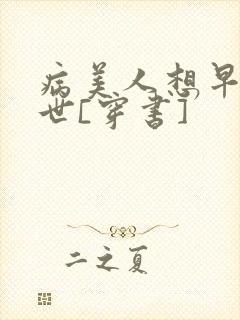 病美人想早
世[穿书]
二之夏